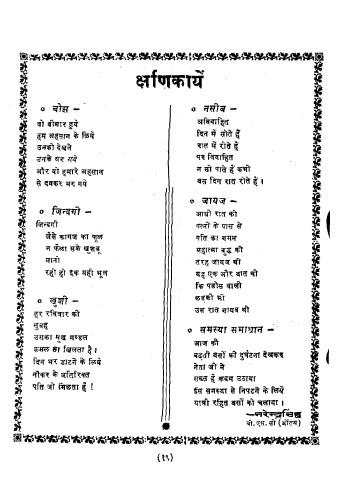 क्षणिकायें
० बोझ –
वो बीमार हुये
हम अहसान के लिये
उनको देखने
उनके घर गये
और वो हमारे अहसान
से दबकर मर गये
० जिन्दगी –
जिन्दगी
जैसे कागज का फूल
न फैला सके खुशबू
मानो
रही हो इक यही भूल
० खुशी –
हर रविवार की
सुबह
उसका मुख मण्डल
कमल सा खिलता है !
दिन भर डाटने के लिये
नौकर के अतिरिक्त
पति जो मिलता है !
० नसीब –
अविवाहित
दिन में सोते हैं
रात में रोते हैं
पर विवाहित
न सो पाते हैं कभी
बस दिन रात रोते हैं ।
० जायज –
आधी रात को
पत्नी के पास से
पति का गमन
महात्मा बुद्ध की
तरह जायज थी
यह एक और बात थी
कि पड़ोस वाली
लड़की भी
उस रात गायब थी
० समस्या समाधान –
आज की
बढ़ती बसों की दुर्घटना देखकर
नेता जी ने
सख्त है कदम उठाया
इस समस्या से निपटने के लिये
यात्री रहित बसों को चलाया ।
—नरेन्द्रसिंह
बी. एस. सी (अंतिम)
(१९)